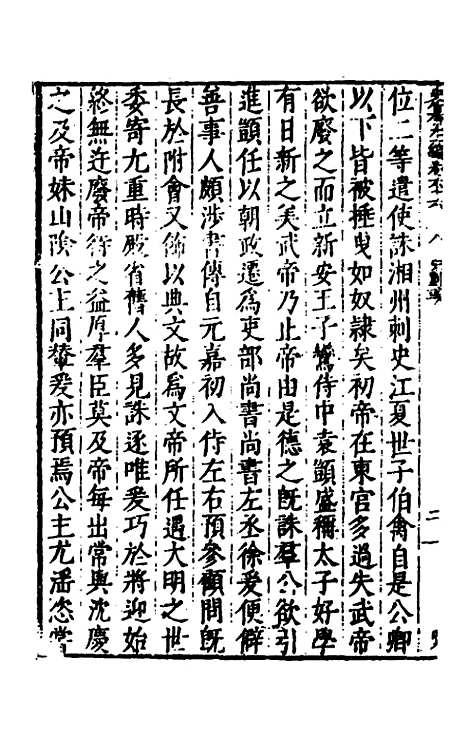 位二等遣使誅湘州刺史江夏世子伯禽自是公卿
以下皆被捶曳如奴隸矣初帝在東宮多過失武帝
欲廢之而立新安王子鸞侍中袁顗盛稱太子好學
有日新之美武帝乃止帝由是德之既誅羣公欲引
進顗任以朝政遷為吏部尚書尚書左丞徐爰便僻
善事人頗涉書傳自元嘉初入侍左右預參顧問既
長於附會又飾以典文故為文帝所任遇大明之世
委寄尤重時殿省舊人多見誅逐唯爰巧於將迎始
終無迕廢帝待之益厚羣臣莫及帝每出常與沈慶
之及帝妹山陰公主同輦爰亦預焉公主尤淫恣嘗